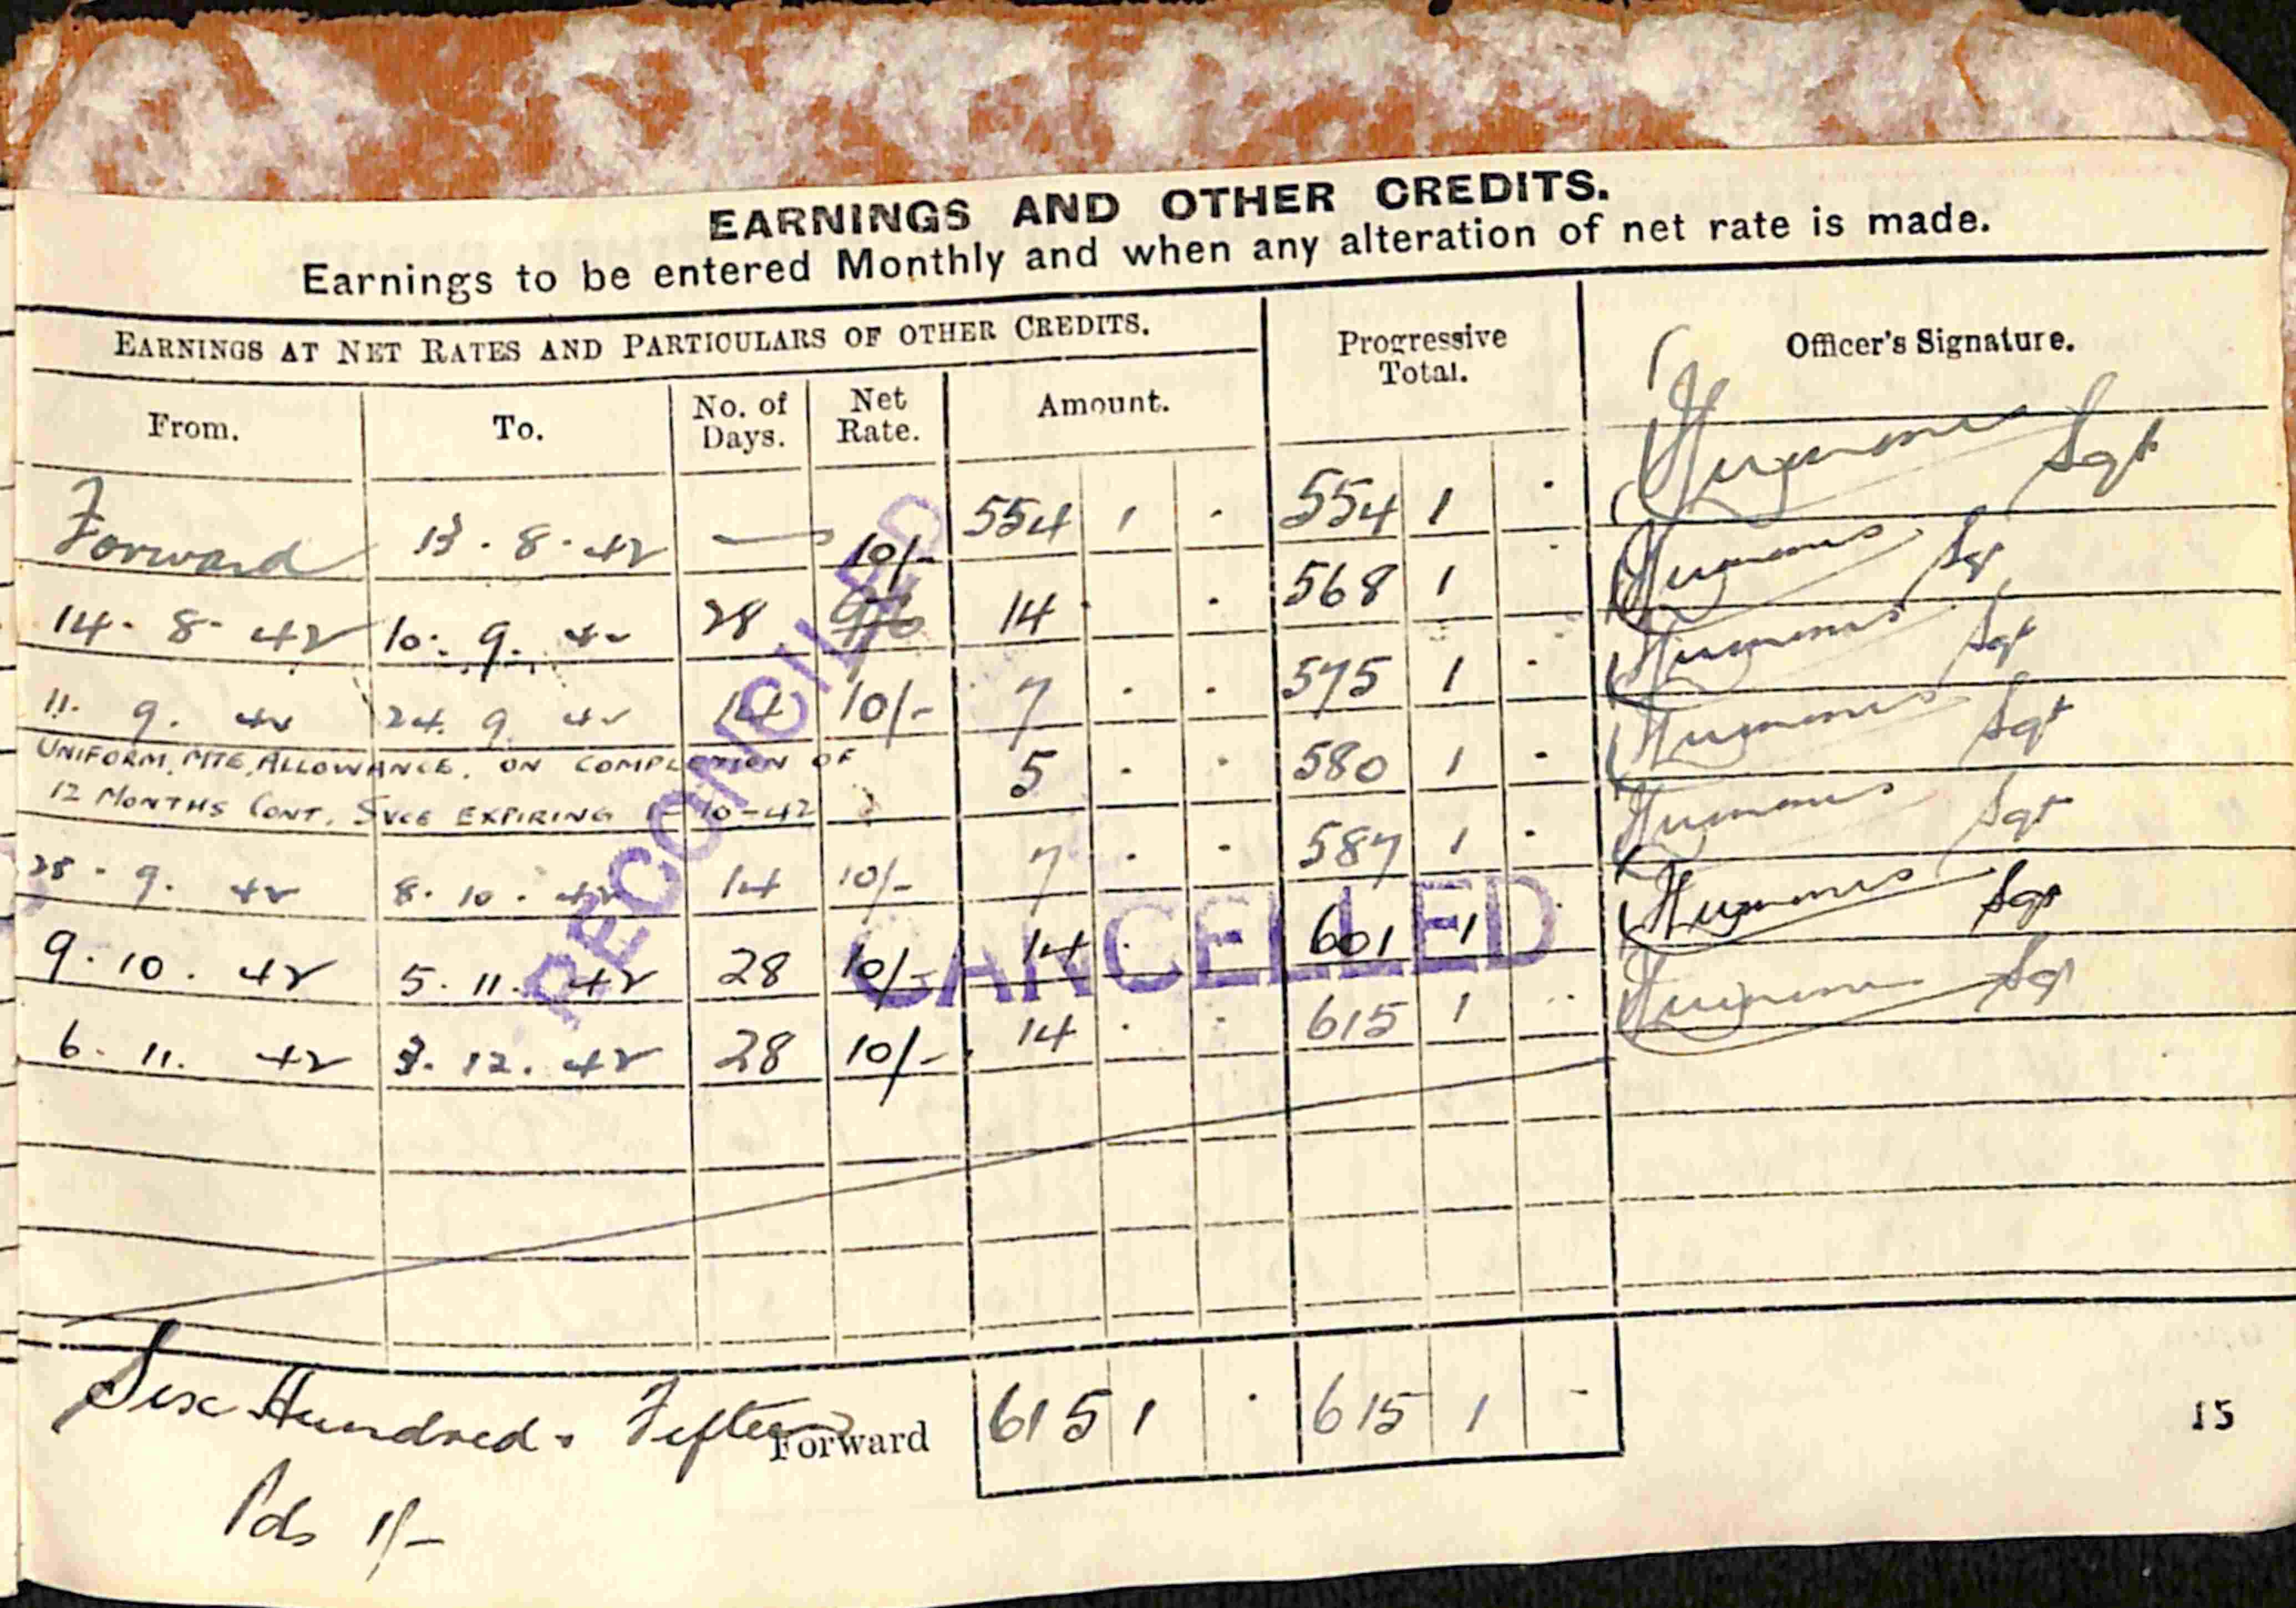 EARNINGS AND OTHER CREDITS.
Earnings to be entered Monthly and when any alteration of net rate is made.
EARNINGS AT NET RATES AND PARTICULARS OF OTHER CREDITS. Progressive Total. Officer's Signature.
From. To. No. of Days. Net Rate. Amount.
Forward 13.8.42 — 554 1 - 554 1 - Sgt
10/-
14.8.42 10.9.42 28 9/6 14 - - 568 1 - Sgt
11.9.42 24.9.42 14 10/- 7 - - 575 1 - Sgt
UNIFORM MTE ALLOWANCE. ON COMPLETION OF 5 - - 580 1 - Sgt
12 MONTHS CONT. SVCE EXPIRING 1-10-42
25.9.42 8.10.42 14 10/- 7 - - 587 1 - Sgt
9.10.42 5.11.42 28 10/- 14 - - 601 1 - Sgt
6.11.42 3.12.42 28 10/- 14 - - 615 1 - Sgt
RECONCILED
CANCELLED
Six Hundred & Fifteen Forward 615 1 - 615 1 -
Pds 1/-
15